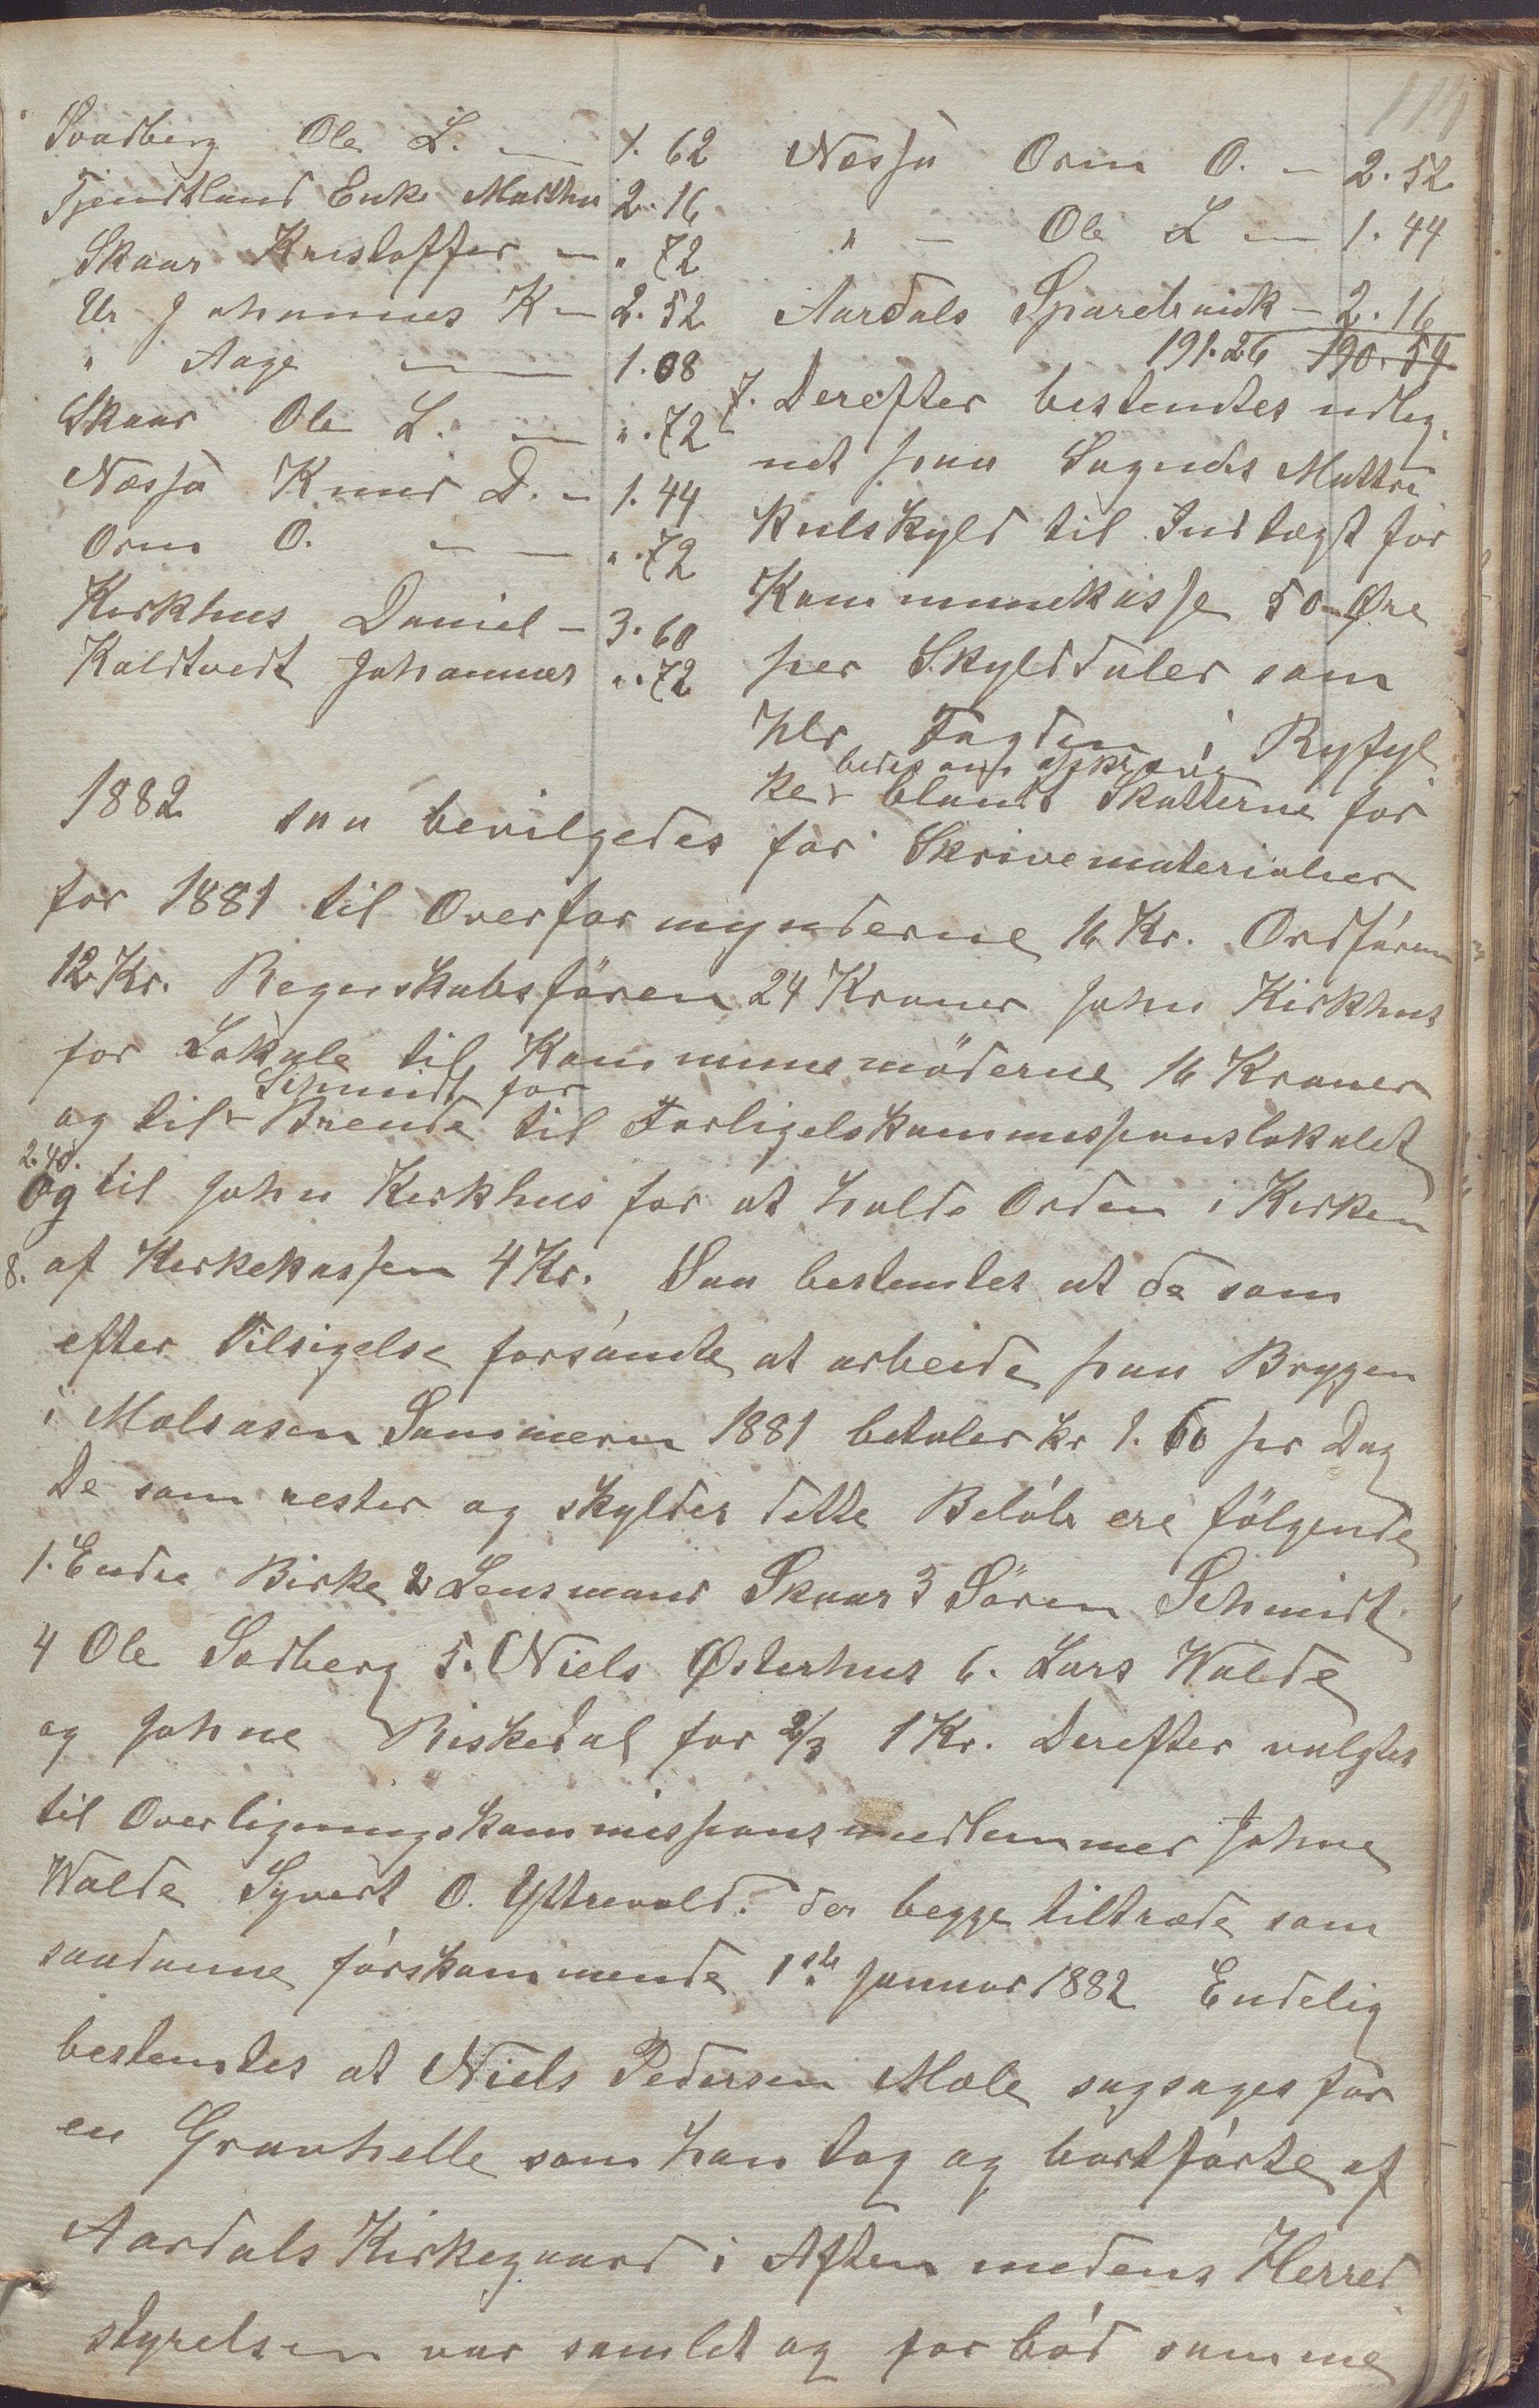 114
Svadberg Ole L. — 1. 62
Tjentland Enke Marthe 2. 16
Skaar Kristoffer — „ 72
Ur Johannes K — 2. 52
„ Aage — 1. 08
Skaar Ole L. — „. 72
Næssa Knud D. — 1. 44
Orm O. — — „. 72
Kirkhus Daniel — 3. 60
Kaltvedt Johannes „. 72
Næssa Orm O. — 2. 52
„ — Ole L — 1. 44
Aardals Sparebank — 2. 16
191.26 190. 54
7. Derefter bestemtes udlig-
net paa Sognets Mattri
kulskyld til Indtægt for
Kommunekasse 50 Øre
per Skylddaler som
Hr Fogden i Ryfyl
bedes om
ke blandt Skatterne for
1882 saa bevilgedes for Skrivematerialier
for 1881 til Overformynderne 16 Kr. Ordføren
12 Kr. Regnskabsføren 24 Kroner John Kirkhus
for Lokale til Kommunemøderne 16 Kroner
Schmidt for
og til Brende til Forligelskommissionslokalet
2.40.
Og til John Kirkhus for at holde Orden i Kirken
8. af Kirkekassen 4 Kr. Saa bestemtes at de som
efter Tilsigelse forsømte at arbeide paa Bryggen
i Molsosen Sommeren 1881 betaler Kr 1. 60 per Dag
De som rester og skylder dette Beløb ere følgende
1. Endre Birke 2 Lensmand Skaar 3 Søren Schmidt
4 Ole Sadberg 5. Niels Østerhus 6. Lars Walde
og Johne Riskedal for 2/3 1 Kr. Derefter valgtes
til Overligningskommissionsmedlemmer Johne
Walde Syvert O. Yttrevold. der begge tiltræde som
saadanne førskommende 1ste Januar 1882 Endelig
bestemtes at Niels Pedersen Mæle sagsøges for
en Gravhelle som han tog og bortførte af
Aardals Kirkegaard i Aften medens Herred
styrelsen var samlet og forbød samme